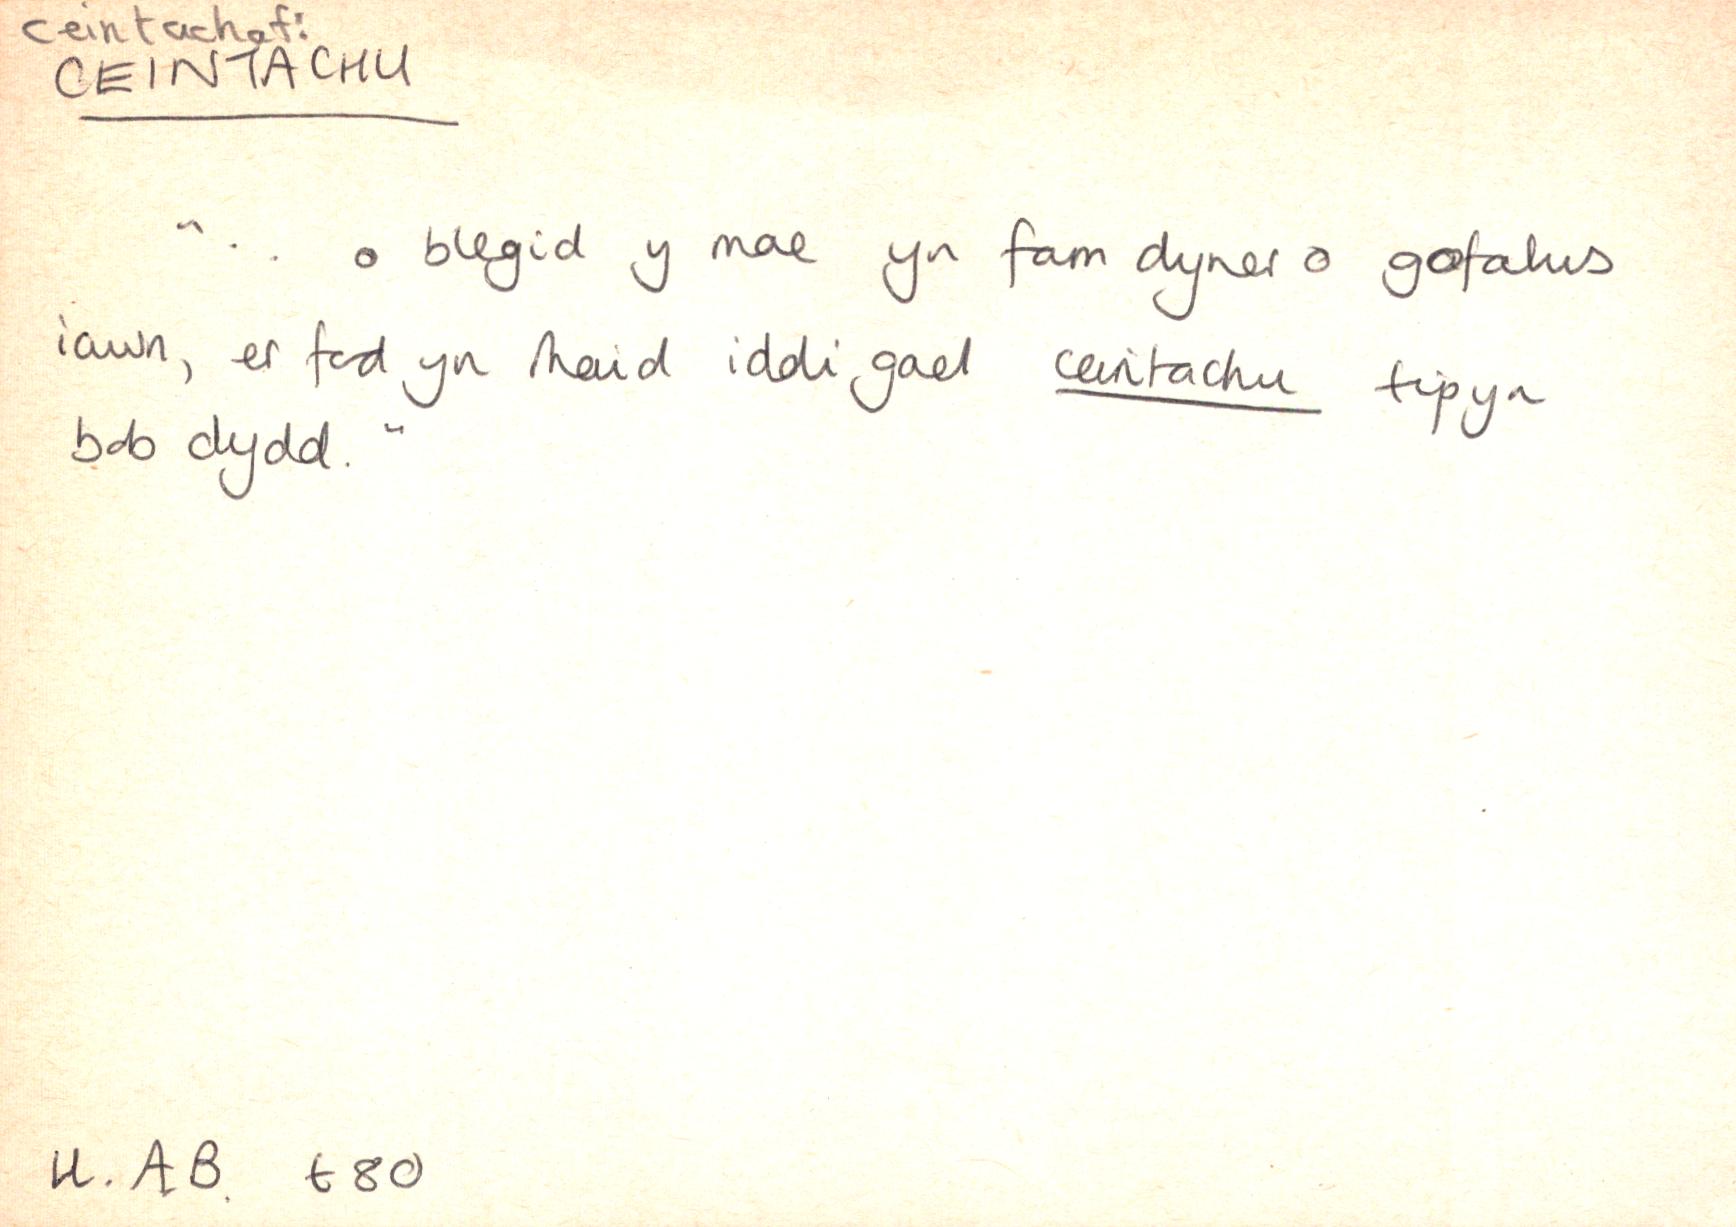 ceintachaf:
CEINTACHU
". . o blegid y mae yn fam dyner o gofalus
iawn, er fod yn rhaid iddi gael ceintachu tipyn
bob dydd."
H. A B. t 80